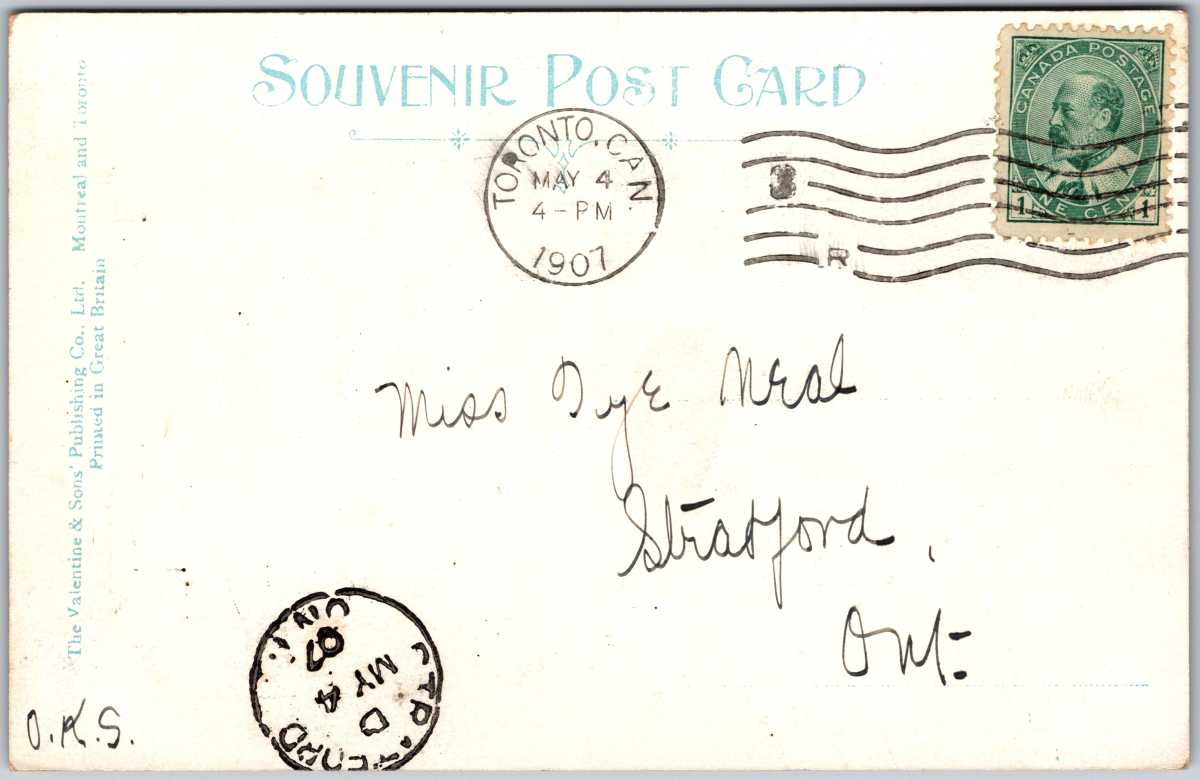 SOUVENIR POST CARD
CANADA POSTAGE
1 ONE CENT 1
TORONTO, CAN.
MAY 4
4-PM
1907
R
The Valentine & Sons' Publishing Co., Ltd. Montreal and Toronto
Printed in Great Britain
Miss Neal
Stratford,
Ont.
STRATFORD
D
MY 4
07
ONT.
O.K.S.